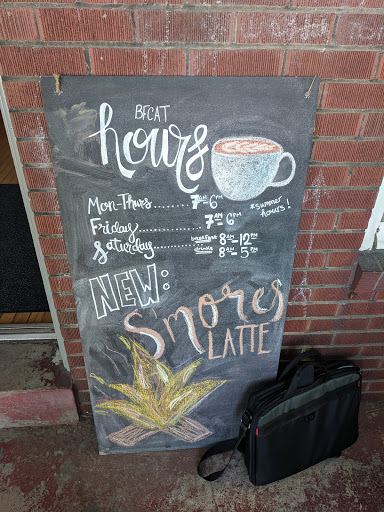 BFCAT
hours
Mon-Thurs........7AM-6PM
Friday..............7AM-6PM
Saturday............breakfast 8AM-12PM
drinks 8AM-5PM
*summer hours!
NEW:
S'mores
LATTE